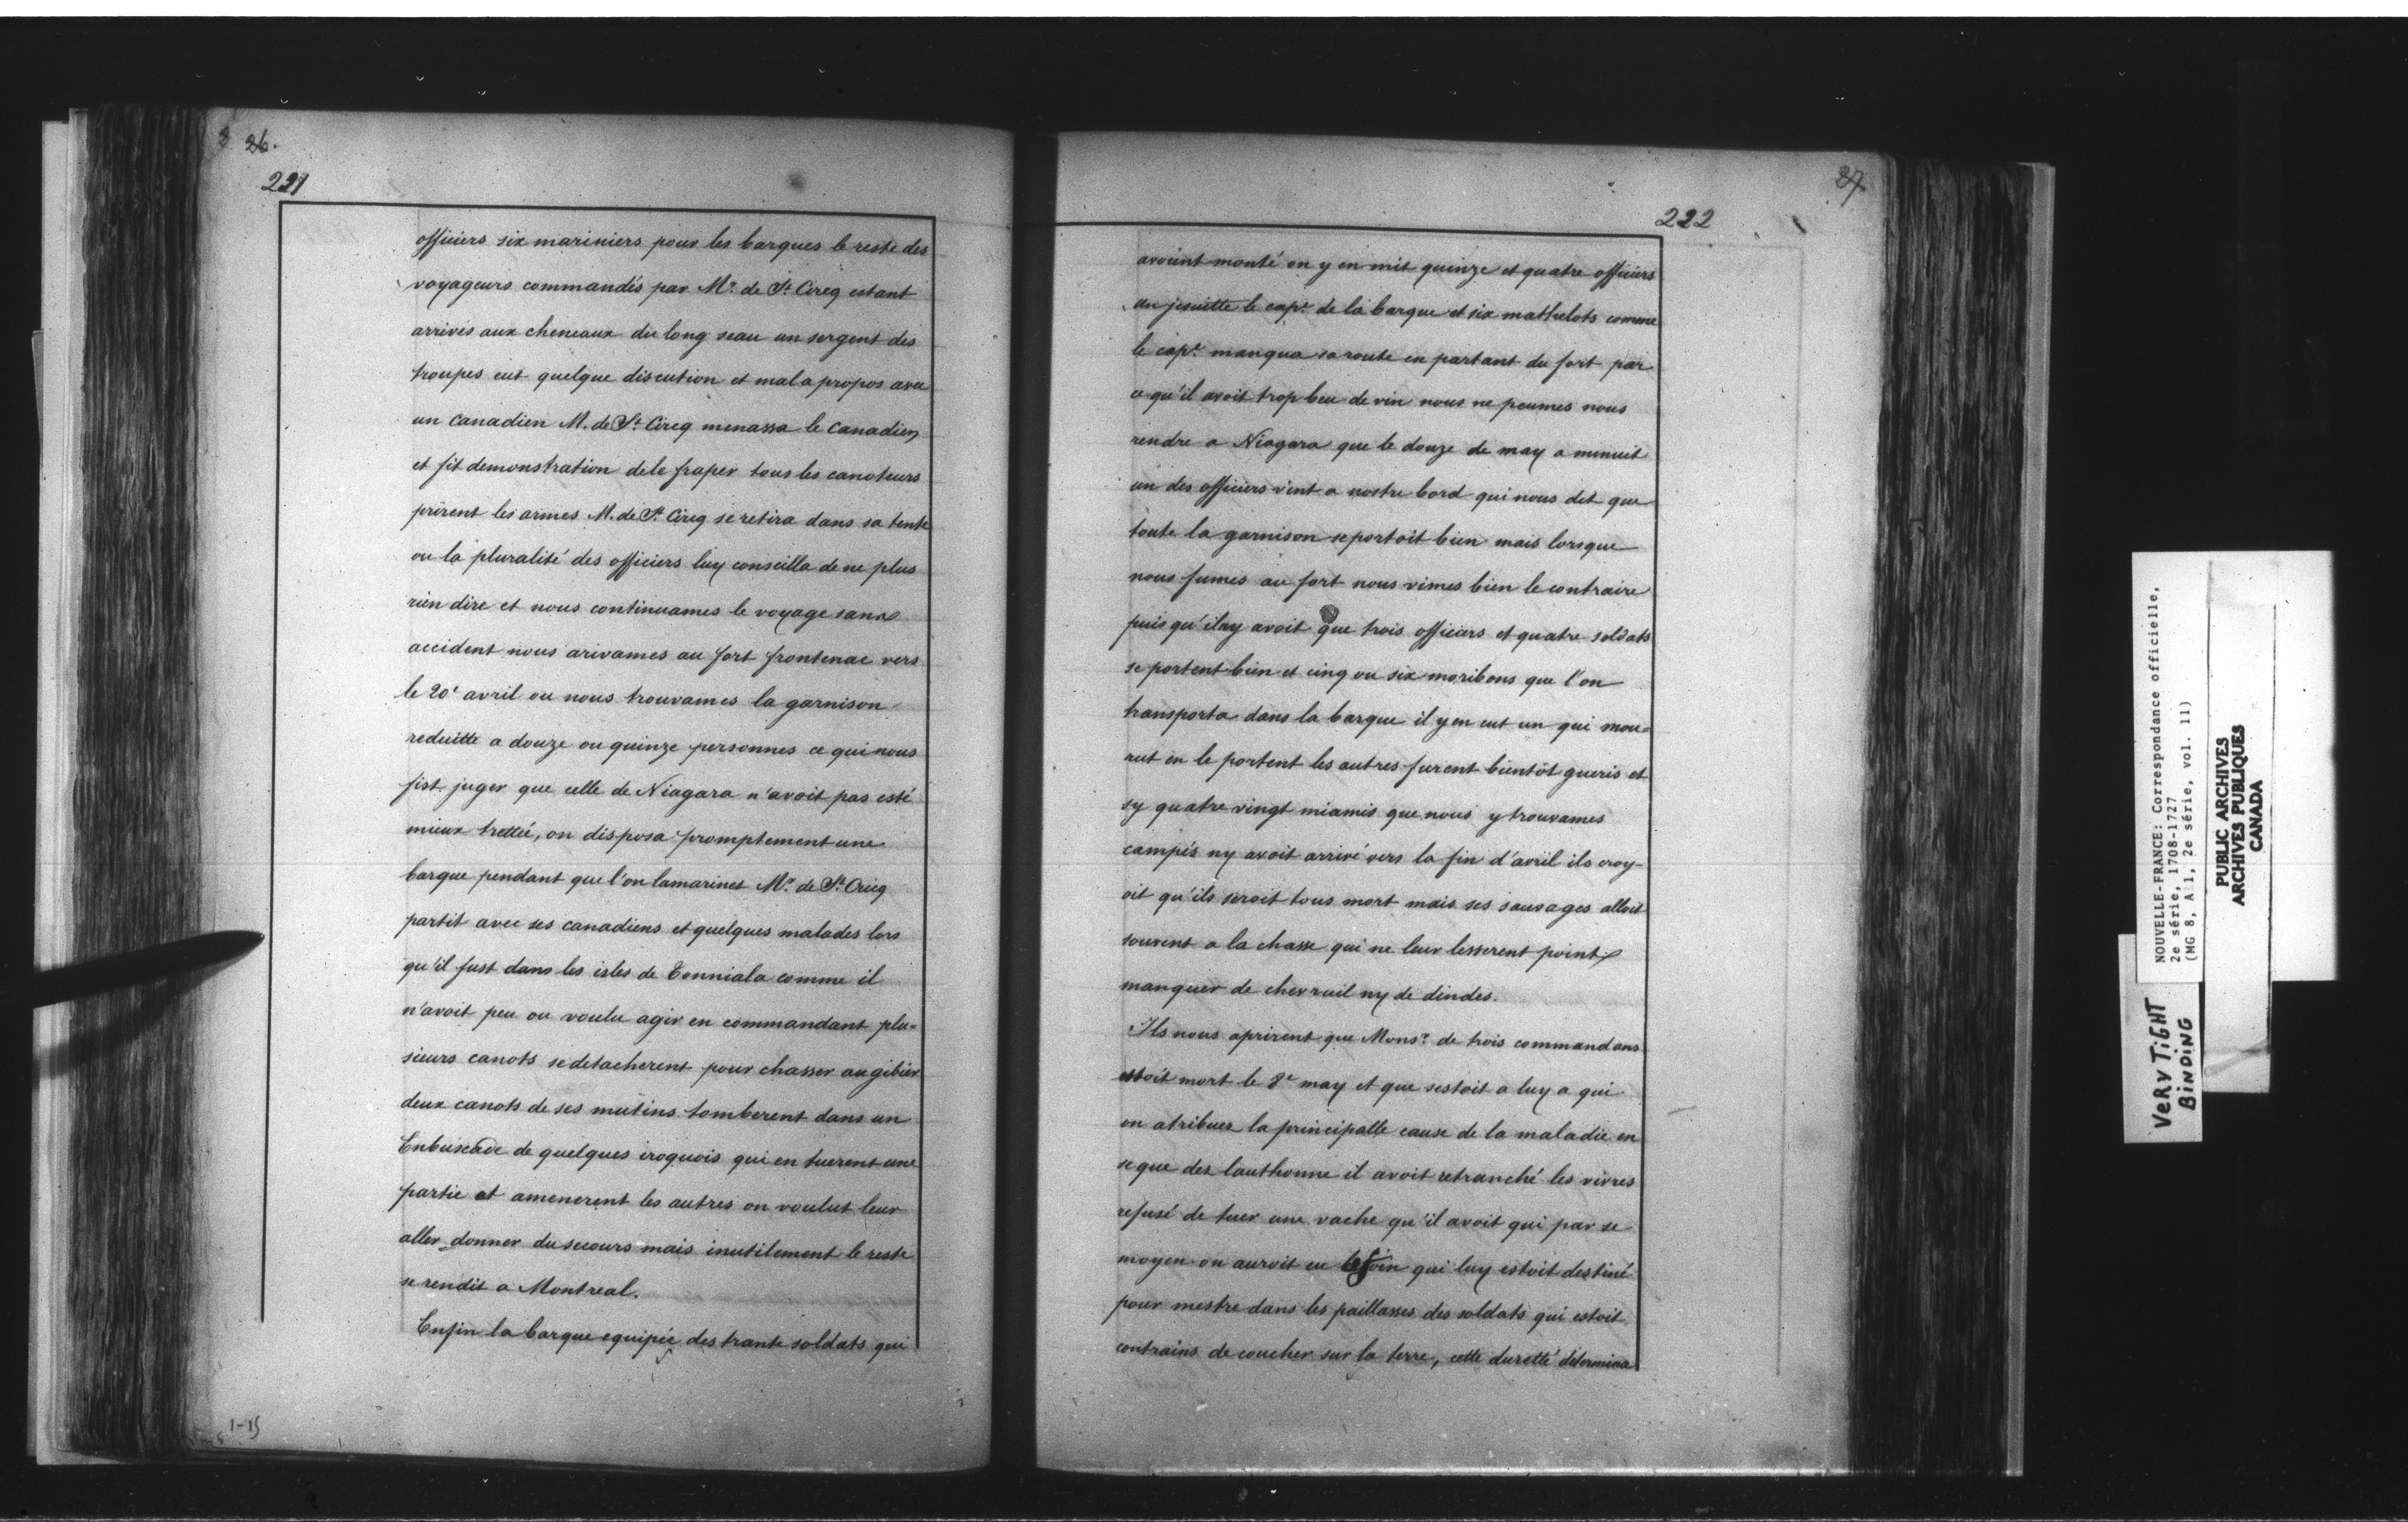 26.
221
officiers six mariniers pour les barques le reste des
voyageurs commandés par Mr. de St. Cireq estant
arrivés aux cheneaux du long seau un sergent des
troupes eut quelque discution et mal a propos avec
un canadien M. de St. Cireq menassa le canadien
et fit demonstration dele fraper tous les canoteurs
prirent les armes M. de St. Cireq se retira dans sa tente
ou la pluralité des officiers luy conseilla de ne plus
rien dire et nous continuames le voyage sans
accident nous arivames au fort frontenac vers
le 20e avril ou nous trouvames la garnison
reduitte a douze ou quinze personnes ce qui nous
fist juger que celle de Niagara n'avoit pas esté
mieux trettée, on disposa promptement une
barque pendant que l'on lamarinet Mr. de St. Cricq
partit avec ses canadiens et quelques malades lors
qu'il fust dans les isles de Tonniala comme il
n'avoit peu ou voulu agir en commandant plu=
sieurs canots se detacherent pour chasser au gibier
deux canots de ses mutins tomberent dans un
Enbuscade de quelques iroquois qui en tuerent une
partie et amenerent les autres on voulut leur
aller donner du secours mais inutilement le reste
se rendit a Montreal.
Enfin la barque equipée des trante soldats qui
1-15
27
222
avoint monté on y en mit quinze et quatre officiers
un jesuitte le capne. de la barque et six mathelots comme
le capne. manqua sa route en partant du fort par
ce qu'il avoit trop beu de vin nous ne peumes nous
rendre a Niagara que le douze de may a minuit
un des officiers vint a nostre bord qui nous dit que
toute la garnison se portoit bien mais lorsque
nous fumes au fort nous vimes bien le contraire
puis qu'ilny avoit que trois officiers et quatre soldats
se portent bien et cinq ou six moribons que l'on
transporta dans la barque il y en eut un qui mou=
rut en le portent les autres furent bientôt gueris et
sy quatre vingt miamis que nous y trouvames
campés ny avoit arrivé vers la fin d'avril ils croy-
oit qu'ils seroit tous mort mais ses sauvages alloit
souvent a la chasse qui ne leur lesserent point
manquer de chevruil ny de dindes.
Ils nous aprirent que Monsr. de trois commandans
estoit mort le 8e may et que sestoit a luy a qui
on atribuez la principalle cause de la maladie en
se que dez lauthonne il avoit retranché les vivres
refusé de tuer une vache qu'il avoit qui par se
moyen on auroit eu le foin qui luy estoit destiné
pour mestre dans les paillasses des soldats qui estoit
contrains de coucher sur la terre, cette duretté determina
NOUVELLE-FRANCE: Correspondance officielle,
2e série, 1708-1727
(MG 8, A 1, 2e série, vol. 11)
PUBLIC ARCHIVES
ARCHIVES PUBLIQUES
CANADA
VERY TIGHT
BINDING